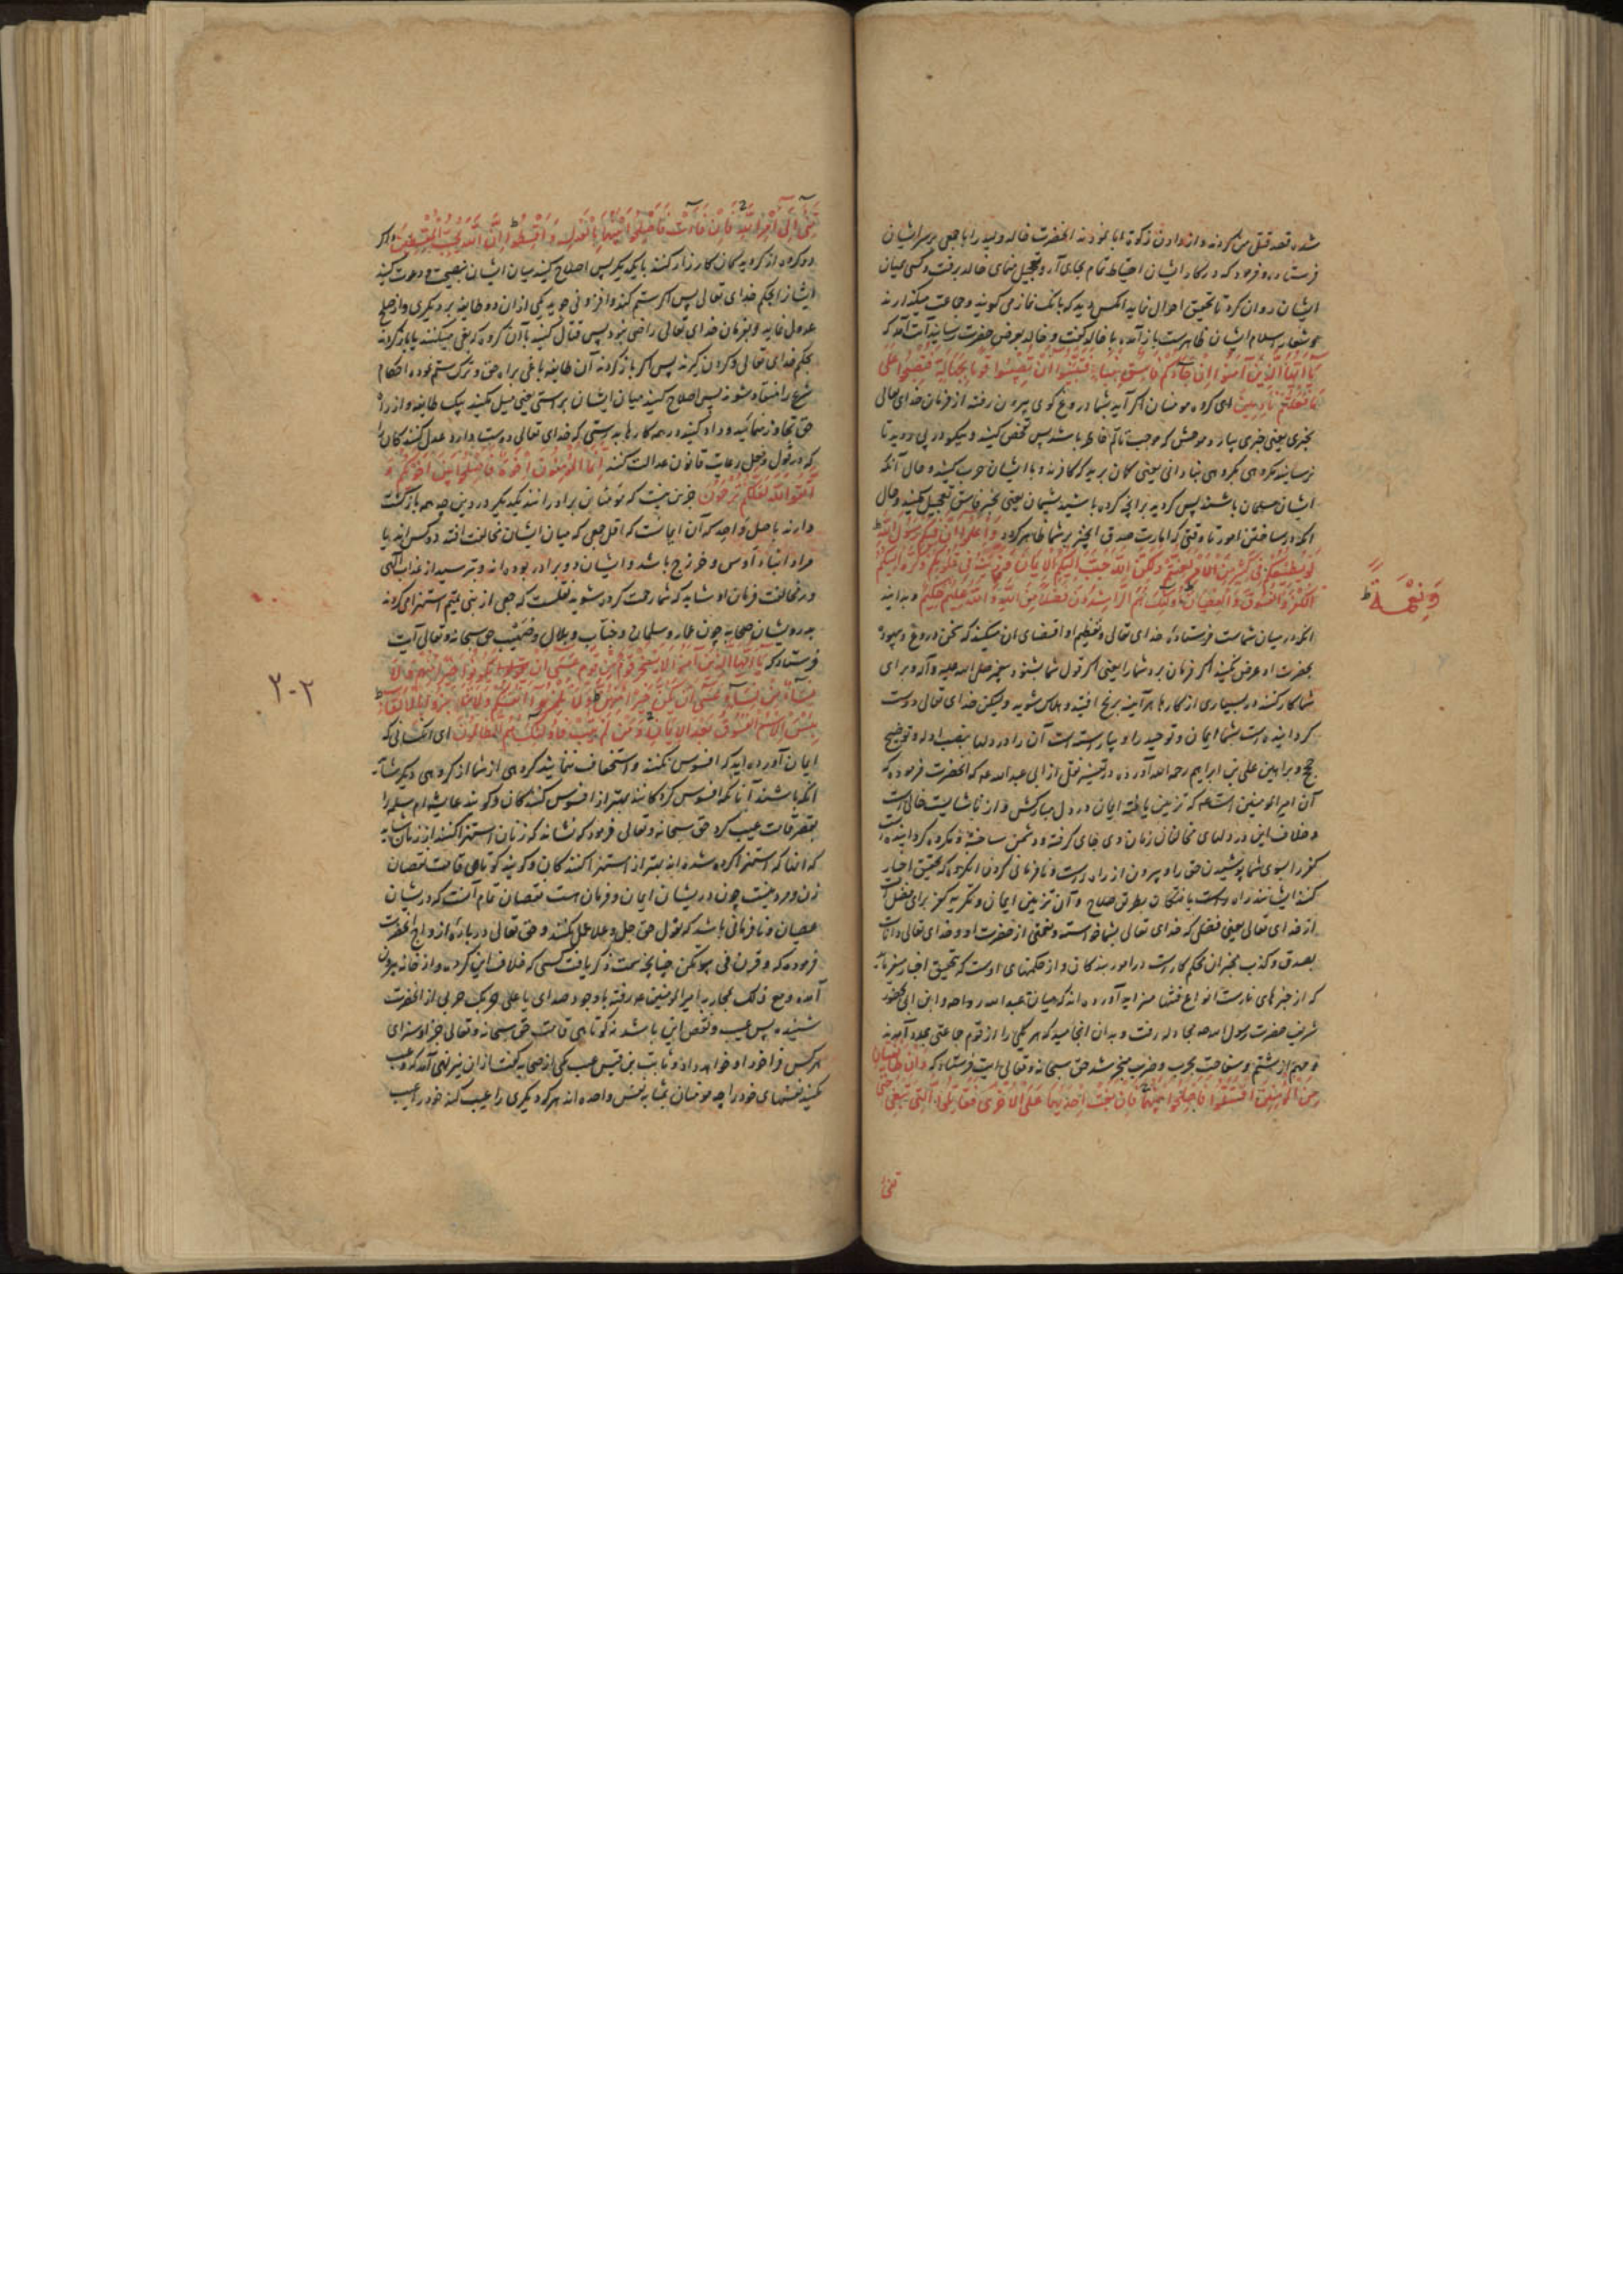 شده قصد قتل من کردند و از دادن زکوة ابا نمودند انحضرت خالد ولید را با جمعی بر سر ایشان
فرستاده و فرمود که در کار ایشان احتیاط تمام بجای آر و تعجیل منمای خالد برفت و کسی میان
ایشان روان کرد تا تحقیق احوال نماید انکس دید که بانک نماز می کویند و جماعت میکذارند
و شعار اسلام ایشان ظاهرست باز آمده با خالد کفت و خالد بعرض حضرت رسانید آیت آمد که
يَا أَيُّهَا الَّذِينَ آمَنُوا إِنْ جَاءَكُمْ فَاسِقٌ بِنَبَإٍ فَتَبَيَّنُوا أَنْ تُصِيبُوا قَوْمًا بِجَهَالَةٍ فَتُصْبِحُوا عَلَى
مَا فَعَلْتُمْ نَادِمِينَ ای کروه مومنان اکر آید بشما دروغ کوی بیرون رفته از فرمان خدای تعالی
بخبری یعنی خبری بیارد موحش که موجب تالم خاطر باشد پس تفحص کنید و نیکو در پی روید تا
نرسانید مکروهی بکروهی بنادانی یعنی کمان برید که کافرند و با ایشان حرب کنید و حال آنکه
ایشان مسلمان باشند پس کردید بر آنچه کرده باشید پشیمان یعنی بخبر فاسق تعجیل مکنید و حال
امور تا وقتی که امارت صدق آن خبر بر شما ظاهر کردد وَاعْلَمُوا أَنَّ فِيكُمْ رَسُولَ اللَّهِ
لَوْ يُطِيعُكُمْ فِي كَثِيرٍ مِنَ الْأَمْرِ لَعَنِتُّمْ وَلَكِنَّ اللَّهَ حَبَّبَ إِلَيْكُمُ الْإِيمَانَ وَزَيَّنَهُ فِي قُلُوبِكُمْ وَكَرَّهَ إِلَيْكُمُ
الْكُفْرَ وَالْفُسُوقَ وَالْعِصْيَانَ أُولَئِكَ هُمُ الرَّاشِدُونَ فَضْلًا مِنَ اللَّهِ وَاللَّهُ عَلِيمٌ حَكِيمٌ و بدانید
وَنِعْمَةً
انکه در میان شماست فرستادهٔ خدای تعالی و تعظیم او اقتضای ان میکند که سخن دروغ و بیهوده
بحضرت او عرض نکنید اکر فرمان برد شما را یعنی اکر قول شما بشنود پیغمبر صلی الله علیه و آله و برای
شما کار کند در بسیاری از کارها هر آینه برنج افتید و هلاک شوید ولیکن خدای تعالی دوست
کردانیده است بشما ایمان و توحید را و بیاراسته است آن را در دلها بنصب ادله و توضیح
حجج و براهین علی بن ابراهیم رحمه الله آورده در تفسیر نقل از ابی عبدالله که انحضرت فرموده که
آن امیر المومنین است که تزیین یافته ایمان در دل مبارکش و از ناشایست خالی است
و خلاف این در دلهای مخالفان زمان وی جای کرفته و دشمن ساخته و مکروه کردانیده است
کفر را بسوی شما پوشیدن حق را و بیرون از راه راست و نافرمانی کردن
کنند ایشانند راه راست یافتکان بطریق صلاح و آن تزیین ایمان و تکریه کفر برای فضل است
از خدای تعالی یعنی فضلی که خدای تعالی بشما خواسته و نعمتی از حضرت او و خدای تعالی دانا است
بصدق و کذب مخبران محکم کار است در امور بندکان و از حکمتهای اوست که تحقیق اخبار میفرماید
که از خبرهای ناراست انواع فتنها میزاید آورده اند که میان عبدالله رواحه و ابن ابی بحضور
شریف حضرت رسول الله مجادله رفت و بدان انجامید که هر یکی را از قوم جماعتی بمدد آمدند
و مهم از شتم و سفاهت بحرب و ضرب منجر شد حق سبحانه و تعالی آیت فرستاد که وَإِنْ طَائِفَتَانِ
مِنَ الْمُؤْمِنِينَ اقْتَتَلُوا فَأَصْلِحُوا بَيْنَهُمَا فَإِنْ بَغَتْ إِحْدَاهُمَا عَلَى الْأُخْرَى فَقَاتِلُوا الَّتِي تَبْغِي حَتَّى
تَفِيءَ
تَفِيءَ إِلَى أَمْرِ اللَّهِ فَإِنْ فَاءَتْ فَأَصْلِحُوا بَيْنَهُمَا بِالْعَدْلِ وَأَقْسِطُوا إِنَّ اللَّهَ يُحِبُّ الْمُقْسِطِينَ و اکر
دو کروه از کرویدکان کارزار کنند با یکدیکر پس اصلاح کنید میان ایشان بنصیحت و دعوت کنید
ایشانرا بحکم خدای تعالی پس اکر ستم کند و افزونی جوید یکی از ان دو طایفه بر دیکری و از صلح
عدول نماید و بفرمان خدای تعالی راضی نبود پس قتال کنید با آن کروه که بغی میکنند تا باز کردند
بحکم خدای تعالی پس اکر باز کردند آن طایفه باغی براه حق و ترک ستم نموده احکام
شرع را منقاد شوند پس اصلاح کنید میان ایشان براستی یعنی میل مکنید بیک طایفه و از راه
حق تجاوز منمائید و داد کنید در همه کارها بدرستی که خدای تعالی دوست دارد عدل کنندکان را
که در قول و فعل رعایت قانون عدالت کنند إِنَّمَا الْمُؤْمِنُونَ إِخْوَةٌ فَأَصْلِحُوا بَيْنَ أَخَوَيْكُمْ وَ
اتَّقُوا اللَّهَ لَعَلَّكُمْ تُرْحَمُونَ جز این نیست که مؤمنان برادرانند یکدیکر در دین چه همه بازکشت
دارند باصل واحد که آن ایمانست که اقل جمعی که میان ایشان مخالفت افتد دو کس اند یا
مراد ابناء اوس و خزرج باشد و ایشان دو برادر بوده اند و بترسید از عذاب الهی
در مخالفت فرمان او شاید که شما رحمت کرده شوید نقلست که جمعی از بنی تمیم استهزا می کردند
بدرویشان صحابه چون عمار و سلمان و خباب و بلال و صهیب حق سبحانه و تعالی آیت
فرستاد که يَا أَيُّهَا الَّذِينَ آمَنُوا لَا يَسْخَرْ قَوْمٌ مِنْ قَوْمٍ عَسَى أَنْ يَكُونُوا خَيْرًا مِنْهُمْ وَلَا
نِسَاءٌ مِنْ نِسَاءٍ عَسَى أَنْ يَكُنَّ خَيْرًا مِنْهُنَّ وَلَا تَلْمِزُوا أَنْفُسَكُمْ وَلَا تَنَابَزُوا بِالْأَلْقَابِ
بِئْسَ الِاسْمُ الْفُسُوقُ بَعْدَ الْإِيمَانِ وَمَنْ لَمْ يَتُبْ فَأُولَئِكَ هُمُ الظَّالِمُونَ ای انکسانی که
۲۰۲
ایمان آورده اید که افسوس نکنند و استخفاف ننمایند کروهی از شما از کروهی دیکر شاید
انکه باشند آنانکه افسوس کرده شدند بهتر از افسوس کنندکان و کویند عایشه ام سلمه را
بقصر قامت عیب کرد حق سبحانه و تعالی فرمود که نشاید که زنان استهزا کنند از زنان شاید
که آنها که استهزا کرده شده اند بهتر از استهزا کنندکان و کویند کوتاهی قامت نقصان
زن و مرد نیست چون در ایشان ایمان و فرمان هست نقصان تمام آنست که در ایشان
عصیان و نافرمانی باشد که بقول حق جل و علا عمل نکنند و حق تعالی در بارهٔ ازواج انحضرت
فرموده که وقرن فی بیوتکن چنانچه سمت ذکر یافت کسی که خلاف این کرده و از خانه بیرون
آمده و مع ذلک بمحاربه امیر المومنین رفته با وجود صدای یا علی حربک حربی از انحضرت
شنیده پس عیب و نقص این باشد نه کوتاهی قامت حق سبحانه و تعالی جزا و سزای
هر کس فراخور او خواهد داد و ثابت بن قیس عیب یکی از صحابه کفت از این نیز نهی آمد که و عیب
مکنید نفسهای خود را چه مومنان بمثابه نفس واحده اند هر که دیکری را عیب کند خود را عیب